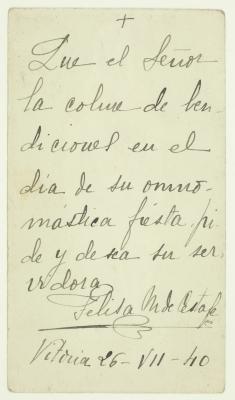 +
Que el Señor
la colme de ben-
diciones en el
día de su onno-
mástica fiesta, pi-
de y desea su ser-
vidora
Felisa M. de
Vitoria 26-VII-40